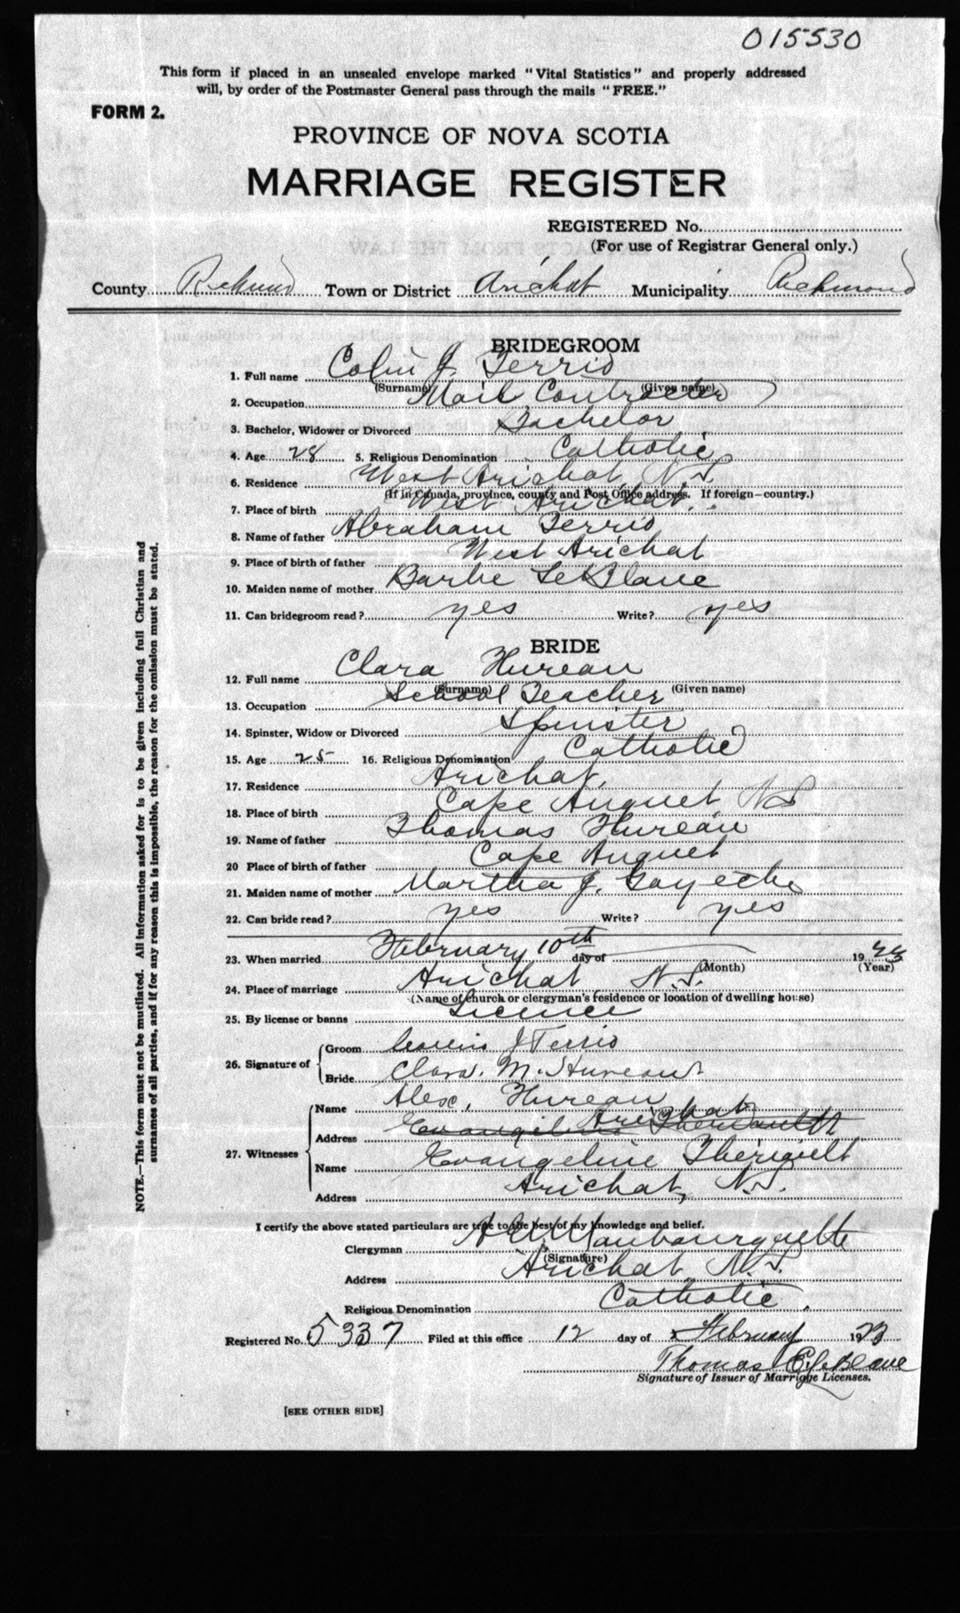 015530
This form if placed in an unsealed envelope marked "Vital Statistics" and properly addressed
will, by order of the Postmaster General pass through the mails "FREE."
FORM 2.
PROVINCE OF NOVA SCOTIA
MARRIAGE REGISTER
REGISTERED No.
(For use of Registrar General only.)
County Richmond Town or District Arichat Municipality Richmond
BRIDEGROOM
1. Full name Colin J. Terrio
(Surname) (Given name)
2. Occupation Mail Contractor
3. Bachelor, Widower or Divorced Bachelor
4. Age 28 5. Religious Denomination Catholic
6. Residence West Arichat, N.S.
(If in Canada, province, county and Post Office address. If foreign—country.)
7. Place of birth West Arichat.
8. Name of father Abraham Terrio
9. Place of birth of father West Arichat
10. Maiden name of mother Barbe LeBlanc
11. Can bridegroom read? yes Write? yes
BRIDE
12. Full name Clara Hureau
(Surname) (Given name)
13. Occupation School Teacher
14. Spinster, Widow or Divorced Spinster
15. Age 25 16. Religious Denomination Catholic
17. Residence Arichat,
18. Place of birth Cape Auguet N S
19. Name of father Thomas Hureau
20 Place of birth of father Cape Auguet
21. Maiden name of mother Martha J.
22. Can bride read? yes Write? yes
23. When married February 10th day of 1923
(Month) (Year)
24. Place of marriage Arichat N.S.
(Name of church or clergyman's residence or location of dwelling house)
25. By license or banns Licence
26. Signature of
Groom J Terrio
Bride Clara. M. Hureau
27. Witnesses
Name Alex. Hureau
Address Arichat
Evangeline Theriault
Name Evangeline Theriault
Address Arichat, N.S.
I certify the above stated particulars are true to the best of my knowledge and belief.
Clergyman
(Signature)
Address Arichat N.S.
Religious Denomination Catholic.
Registered No. 5337 Filed at this office 12 day of February 1923
Thomas E LeBlanc
Signature of Issuer of Marriage Licenses.
[SEE OTHER SIDE]
NOTE.—This form must not be mutilated. All information asked for is to be given including full Christian and
surnames of all parties, and if for any reason this is impossible, the reason for the omission must be stated.